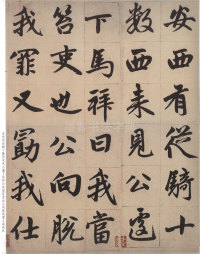 安西有從騎十
數西来見公遽
下馬拜曰我當
笞吏也公向脫
我罪又勖我仕